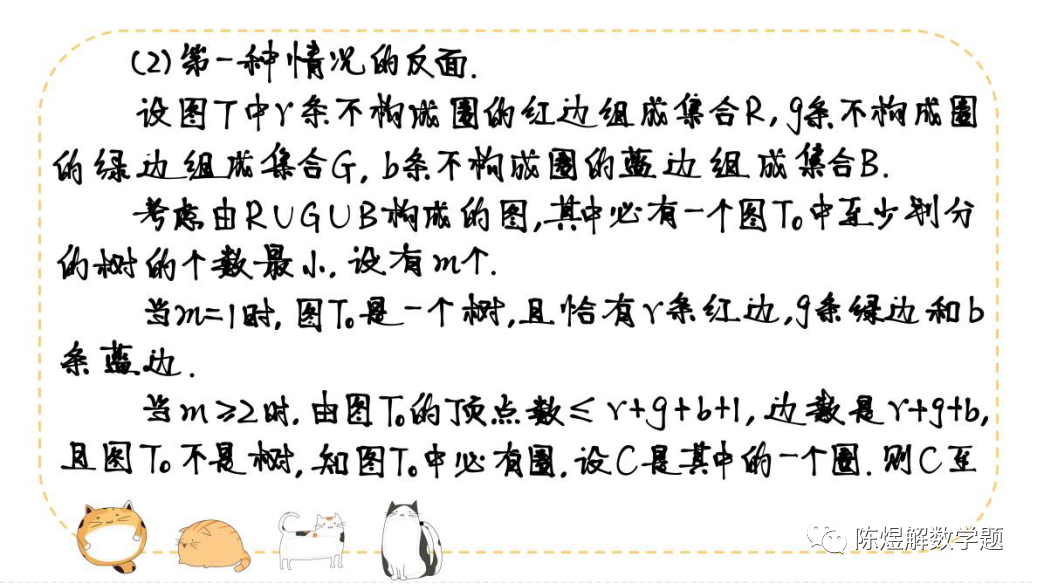 (2)第一种情况的反面.
设图T中r条不构成圈的红边组成集合R,g条不构成圈
的绿边组成集合G,b条不构成圈的蓝边组成集合B.
考虑由R∪G∪B构成的图,其中必有一个图T₀中至少划分
的树的个数最小.设有m个.
当m=1时,图T₀是一个树,且恰有r条红边,g条绿边和b
条蓝边.
当m≥2时,由图T₀的顶点数≤r+g+b+1,边数是r+g+b,
且图T₀不是树,知图T₀中必有圈.设C是其中的一个圈.则C至
陈煜解数学题